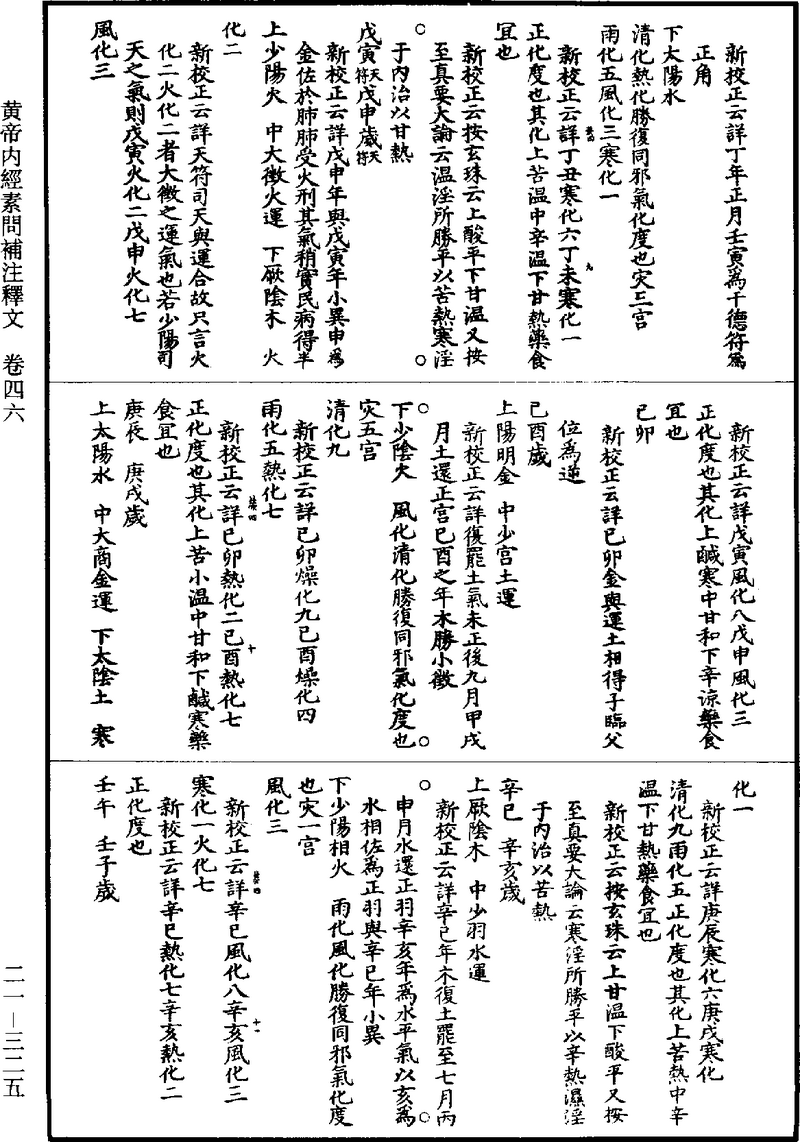 新校正云詳丁年正月壬寅爲干德符爲
正角
下太陽水
清化熱化勝復同邪氣化度也灾三宮
雨化五風化三寒化一
新校正云詳丁丑寒化六丁未寒化一
正化度也其化上苦温中辛温下甘熱藥食
冝也
新校正云按玄珠云上酸平下甘温又按
至真要大論云温淫所勝平以苦熱寒淫
于内治以甘熱
戊寅天符戊申歲天符
新校正云詳戊申年與戊寅年小異申爲
金佐於肺肺受火刑其氣稍實民病得半
上少陽火 中大徵火運 下厥陰木 火
化二
新校正云詳天符司天與運合故只言火
化二火化二者大徵之運氣也若少陽司
天之氣則戊寅火化二戊申火化七
風化三
新校正云詳戊寅風化八戊申風化三
正化度也其化上鹹寒中甘和下辛涼藥食
冝也
己卯
新校正云詳己卯金與運土相得子臨父
位爲逆
己酉歲
上陽明金 中少宮土運
新校正云詳復罷土氣未正後九月甲戌
月土還正宮己酉之年木勝小徵
下少陰火 風化清化勝復同邪氣化度也
灾五宮
清化九
新校正云詳己卯燥化九己酉燥化四
雨化五熱化七
新校正云詳己卯熱化二己酉熱化七
正化度也其化上苦小温中甘和下鹹寒藥
食冝也
庚辰 庚戌歲
上太陽水 中大商金運 下太陰土 寒
化一
新校正云詳庚辰寒化六庚戌寒化
清化九雨化五正化度也其化上苦熱中辛
温下甘熱藥食冝也
新校正云按玄珠云上甘温下酸平又按
至真要大論云寒淫所勝平以辛熱濕淫
于内治以苦熱
辛巳 辛亥歲
上厥陰木 中少羽水運
新校正云詳辛巳年木復土罷至七月丙
申月水還正羽辛亥年爲水平氣以亥爲
水相佐爲正羽與辛巳年小異
下少陽相火 雨化風化勝復同邪氣化度
也灾一宮
風化三
新校正云詳辛巳風化八辛亥風化三
寒化一火化七
新校正云詳辛巳熱化七辛亥熱化二
正化度也
壬午 壬子歲
黄帝内經素問補注釋文 卷四六
二一—三二五